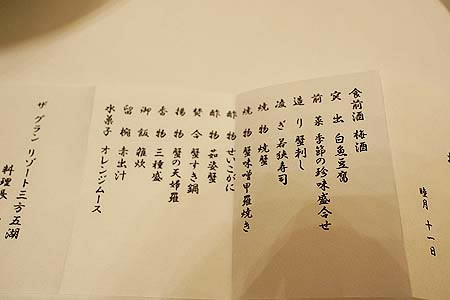 睦月 十一日
食前酒 梅酒
突出 白魚豆腐
前菜 季節の珍味盛合せ
造り 蟹刺し
凌ぎ 若狭寿司
焼物 焼蟹
焼物 蟹味噌甲羅焼き
酢物 せいこがに
酢物 茹姿蟹
焚合 蟹すき鍋
揚物 蟹の天婦羅
香物 三種盛
御飯 雑炊
留椀 赤出汁
水菓子 オレンジムース
ザ グランリゾート三方五湖
料理長